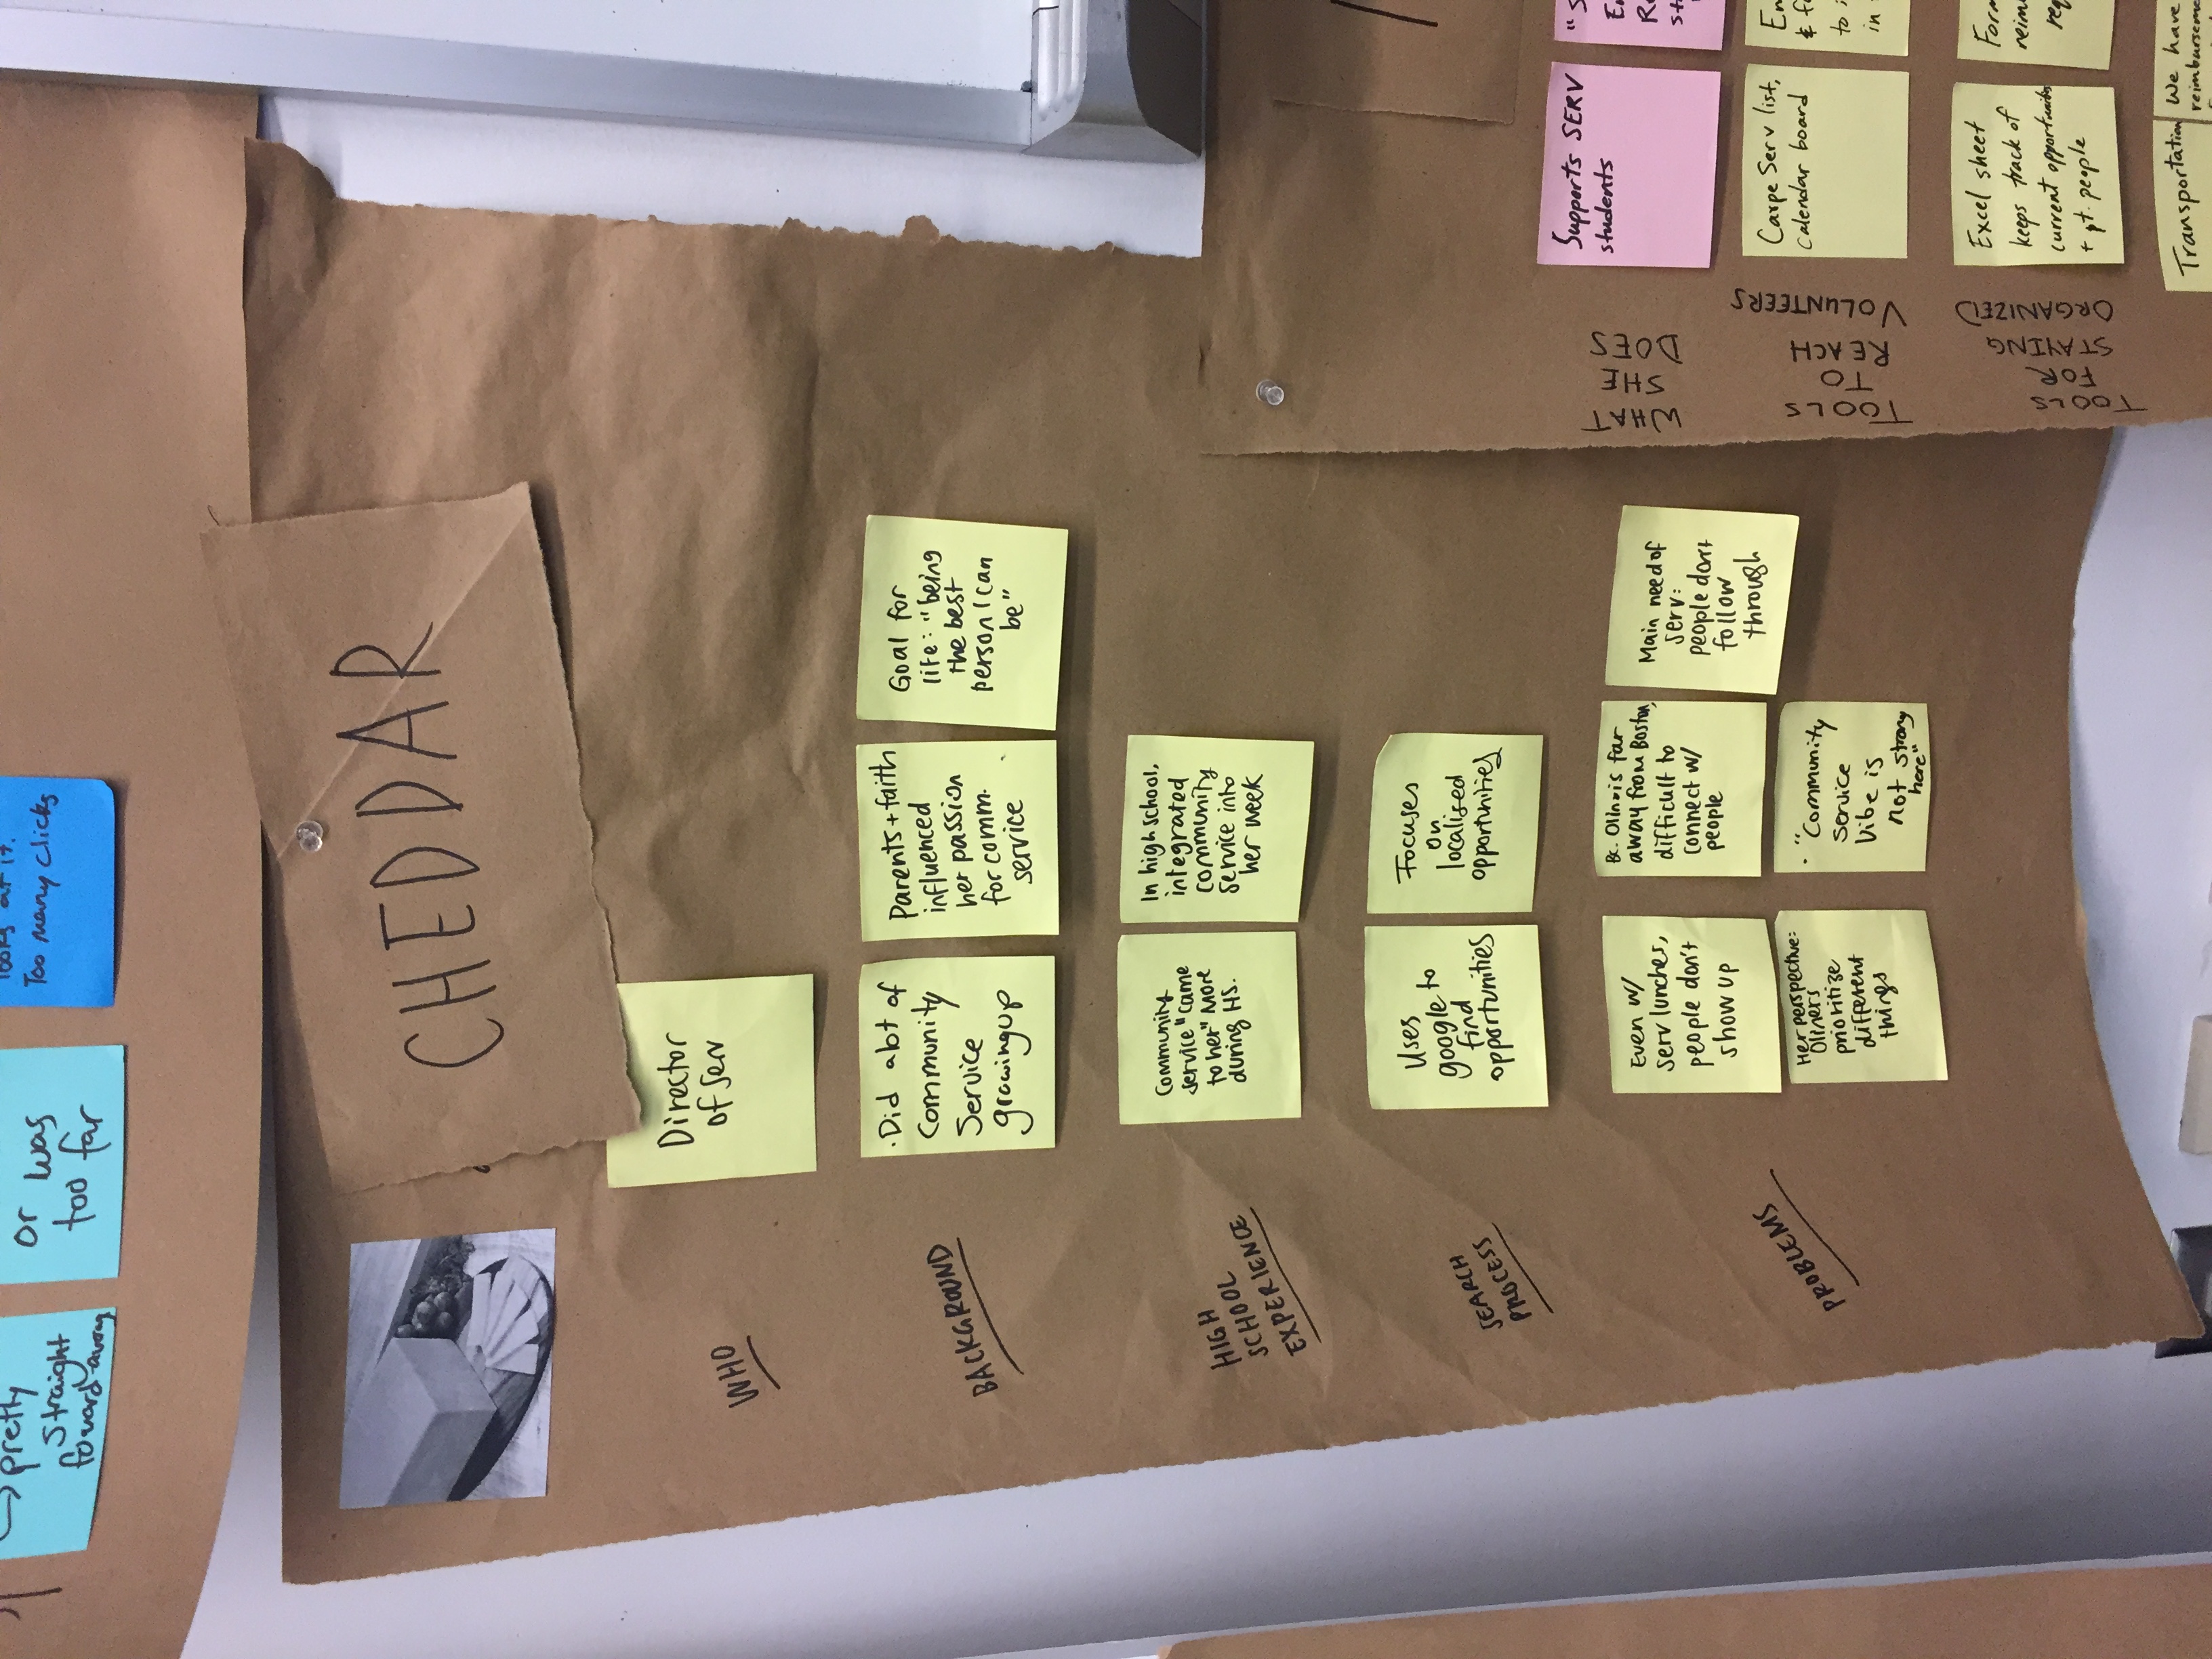 pretty
straight
foward
or was
too far
looks at it.
Too many clicks
CHEDDAR
WHO
Director
of Serv
BACKGROUND
·Did alot of
Community
Service
growing up
Parents + faith
influenced
her passion
for comm.
service
Goal for
life: "being
the best
person I can
be"
HIGH
SCHOOL
EXPERIENCE
Community
service "came
to her" more
during HS.
In high school,
integrated
community
service into
her week
SEARCH
PROCESS
Uses
google to
find
opportunities
Focuses
on
localised
opportunities
PROBLEMS
Even w/
serv lunches,
people don't
show up
Bc. Olin is far
away from Boston,
difficult to
connect w/
people
Main need of
serv:
people don't
follow
through
Her perspective:
Oliners
prioritize
different
things
· "Community
Service
Vibe is
not strong
here"
WHAT
SHE
DOES
Supports SERV
students
TOOLS
TO
REACH
VOLUNTEERS
Carpe Serv list,
calendar board
TOOLS
FOR
STAYING
ORGANIZED
Excel sheet
keeps track of
current opportunities
+ pt. people
Transportation
We have